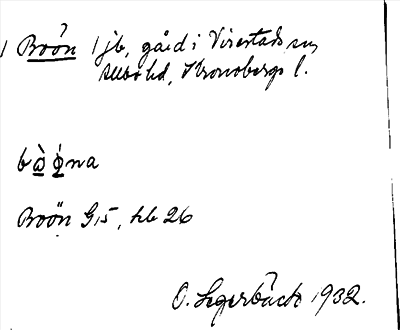 1 Boön 1 jb, gård i Virestads sn,
Allbo hd, Kronobergs l.
bo̠ò̠na
Boön G15, hb 26
O. Segerbäck 1932.